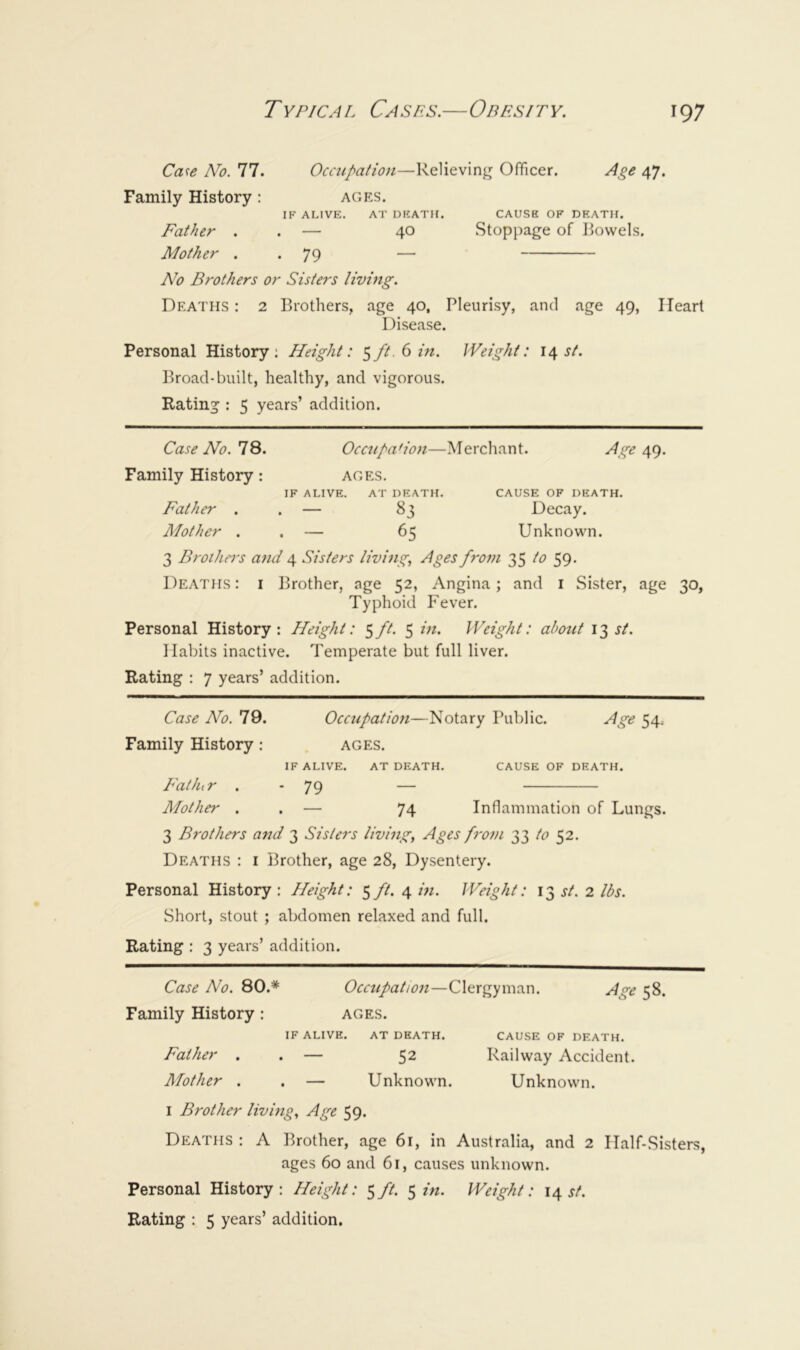 TYPICAL CASES.—OBESITY. 197
Case No. 77. Occupation—Relieving Officer. Age 47.
Family History : AGES.
IF ALIVE. AT DEATH. CAUSE OF DEATH.
Father . . — 40 Stoppage of Bowels.
Mother . . 79 — ———
No Brothers or Sisters living.
DEATHS : 2 Brothers, age 40, Pleurisy, and age 49, Heart
Disease.
Personal History : Height : 5 ft. 6 in. Weight : 14 st.
Broad-built, healthy, and vigorous.
Rating : 5 years' addition.
Case No. 78. Occupation—Merchant. Age 49.
Family History : AGES.
IF ALIVE. AT DEATH. CAUSE OF DEATH.
Father . . — 83 Decay.
Mother . . — 65 Unknown.
3 Brothers and 4 Sisters living, Ages from 35 to 59.
DEATHS : 1 Brother, age 52, Angina ; and 1 Sister, age 30,
Typhoid Fever.
Personal History : Height : 5 ft. 5 in. Weight : about 13 st.
Habits inactive. Temperate but full liver.
Rating : 7 years' addition.
Case No. 79. Occupation—Notary Public. Age 54.
Family History : AGES.
IF ALIVE. AT DEATH. CAUSE OF DEATH.
Father . - 79 — ———
Mother . . — 74 Inflammation of Lungs.
3 Brothers and 3 Sisters living, Ages from 33 to 52.
DEATHS : 1 Brother, age 28, Dysentery.
Personal History : Height : 5 ft. 4 in. Weight : 13 st. 2 lbs.
Short, stout ; abdomen relaxed and full.
Rating : 3 years' addition.
Case No. 80.* Occupation—Clergyman. Age 58.
Family History : AGES.
IF ALIVE. AT DEATH. CAUSE OF DEATH.
Father . . — 52 Railway Accident.
Mother . . — Unknown. Unknown.
1 Brother living, Age 59.
DEATHS : A Brother, age 61, in Australia, and 2 Half-Sisters,
ages 60 and 61, causes unknown.
Personal History : Height : 5 ft. 5 in. Weight : 14 st.
Rating : 5 years' addition.